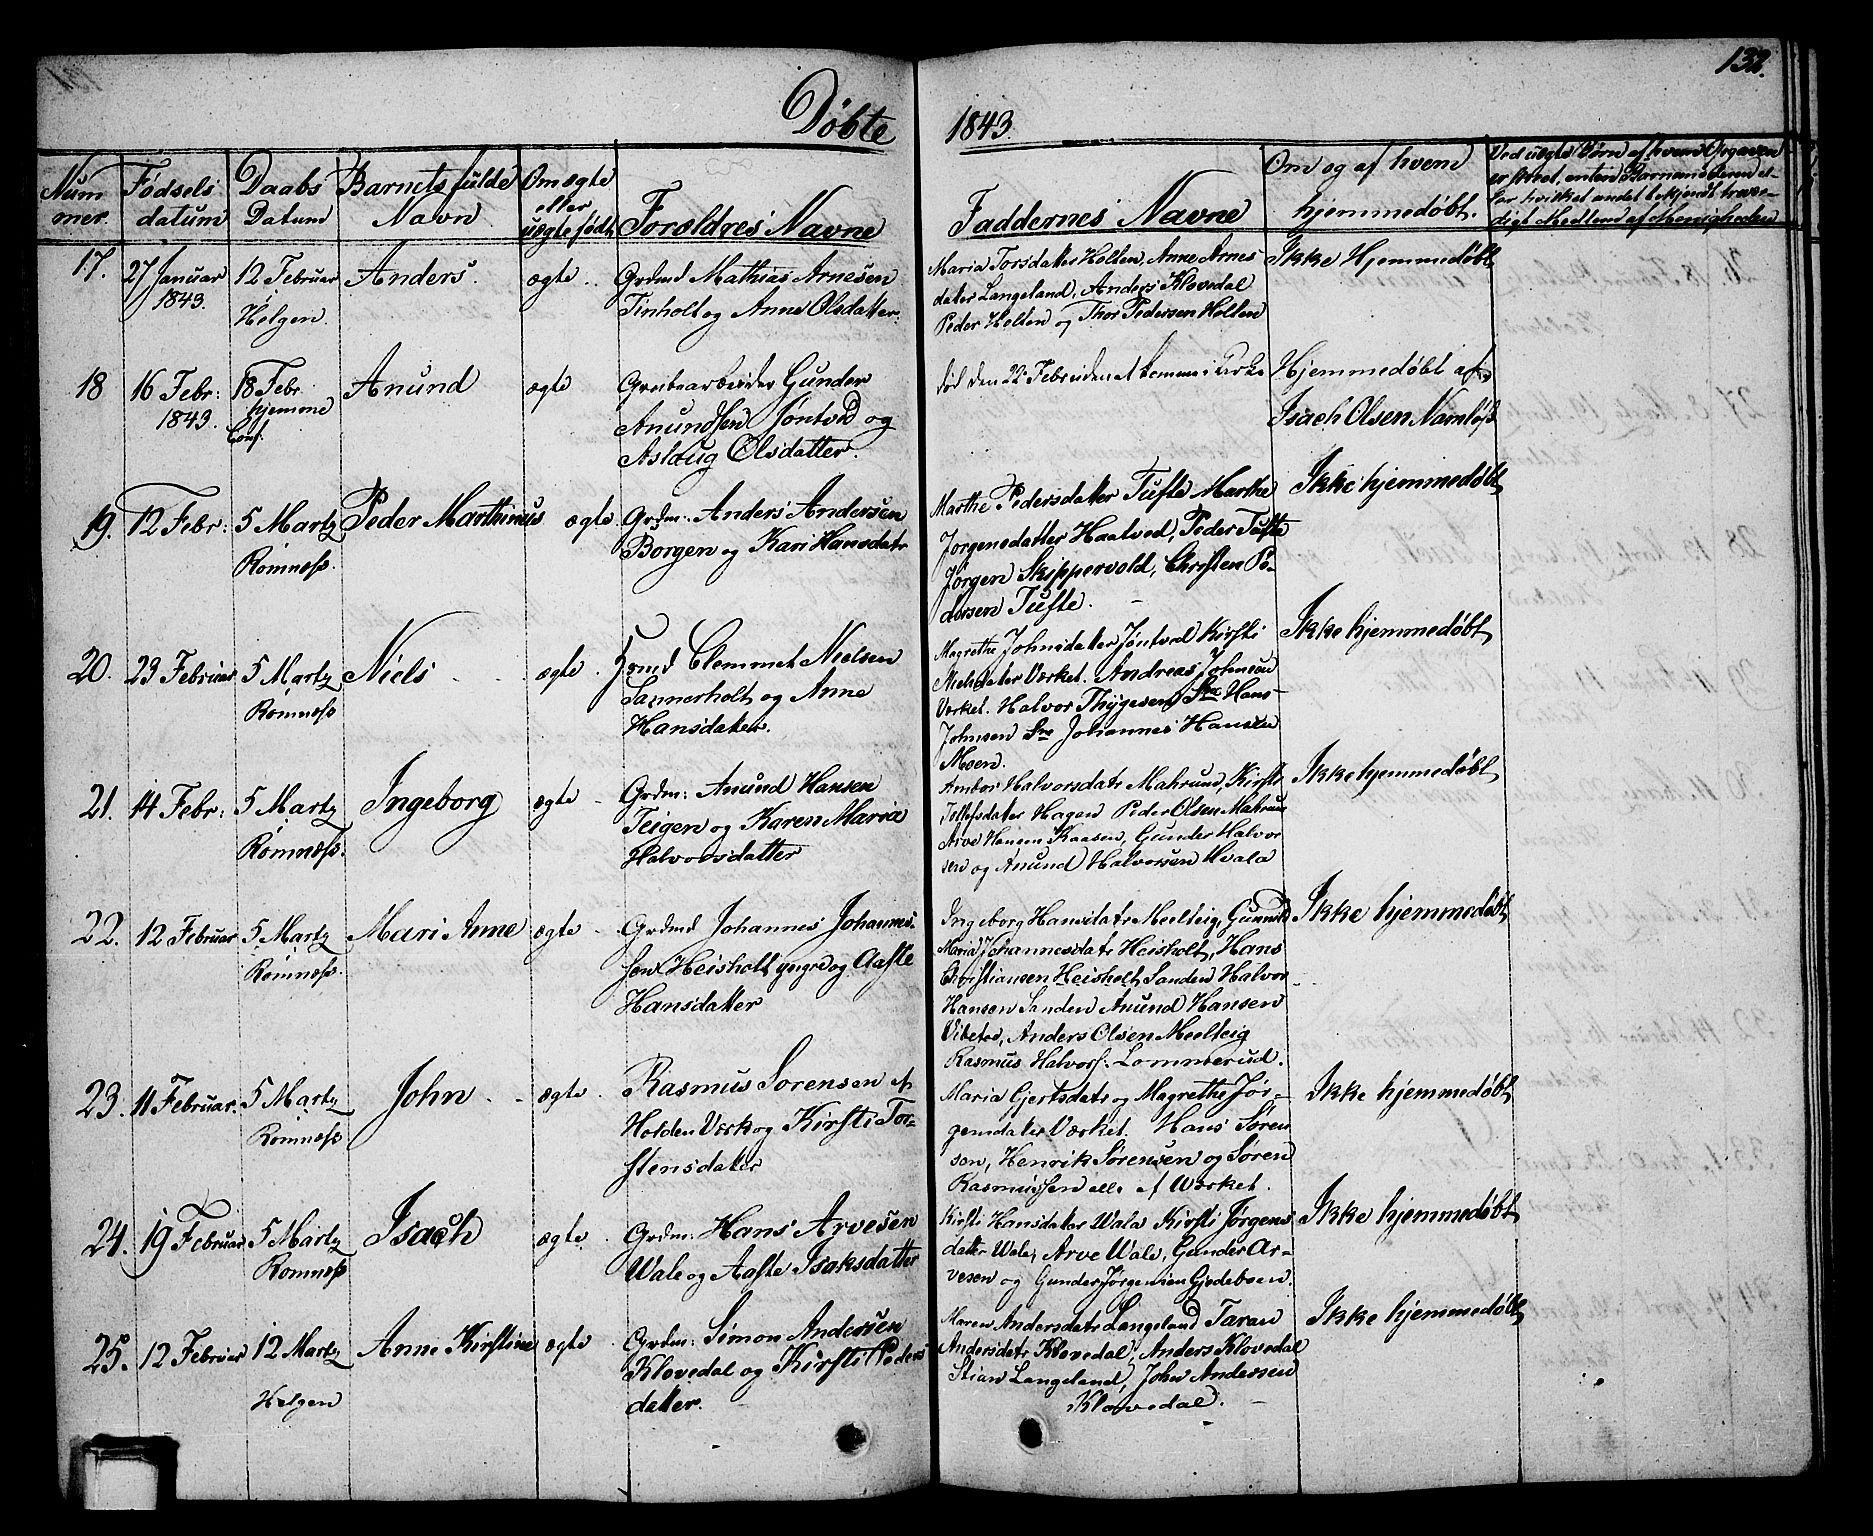 132.
Døbte 1843.
Num mer. Fødsels datum Daabs Datum Barnets fulde Navn Om ægte eller uægte født Forældres Navne Faddernes Navne Om og af hvem hjemmedøbt. Ved uægte Børn af hvem Opgaven er skeet, enten Barnemoderen el-
ler hvilket andet bekjendt trovær-
digt Medlem af Menigheden
17. 27 Januar 1843. 12 Februar Helgen. Anders. ægte Grdmd Mathias Arnesen
Tinholt og Anne Olsdatter.
Maria Torsdatter Holten, Anne Arnes
datter Langeland, Anders Klovedal
Peder Holten og Thor Pedersen Holten
Ikke Hjemmedøbt
18 16 Febr: 1843. 18 Febr hjemme Conf. Anund ægte Grubearbeider Gunder
Anundsen Jøntvd og
Aslaug Olsdatter.
død den 22 Febr uden at komme i Kirke
Hjemmedøbt af
Isach Olsen Namløs
19. 12 Febr: 5 Martz Romnæss. Peder Marthinus ægte. Grdm: Anders Andersen
Borgen og Kari Hansdatr
Marthe Pedersdatter Tufte Marthe
Jorgensdatter Haatved, Peder Tufte
Jørgen Skippervold, Christen Pe-
dersen Tufte.
Ikke hjemmedøbt
20. 23 Februar 5 Martz Romnæss Niels ægte Hsmd Clemmet Nielsen
Sannerholt og Anne
Hansdatter.
Magrethe Johnsdatter Jøntved Kirsti
Nielsdatter Værket. Andreas Johnsen
Værket. Halvor Thygesen, Hans
Johnsen Johannes Hansen
Moen.
Ikke hjemmedøbt
21. 14 Febr: 5 Martz Romnæss. Ingeborg ægte Grdm: Anund Hansen
Teigen og Karen Maria
Halvorsdatter
Ambor Halvorsdatr Mahrund, Kirsti
Tellefsdatter Hagen Peder Olsen Mahrun
Arve Hansen Kaasen, Gunder Halvor
sen og Anund Halvorsen Hvala
Ikke hjemmedøbt
22. 12 Februar 5 Martz Romnæss. Mari Anne ægte Grdmd Johannes Johannes-
sen Heisholt yngre og Aaste
Hansdatter
Ingeborg Hansdatr Meelteig, Gunnild
Maria Johannesdatr Heisholt, Hans
Christiansen Heisholt, Sanden Halvor
Hansen Sanden Anund Hansen
Vibeto, Anders Olsen Meelteig
Rasmus Halvors: Lommerud.
Ikke hjemmedøbt
23. 11 Februar. 5 Martz Romnæss John ægte Rasmus Sorensen af
Holden Værk og Kirsti Tor-
stensdatter
Maria Gjertsdatr og Magrethe Jør-
gensdatter Værket. Hans Søren
sen, Henrik Sørensen og Søren
Rasmussen alle af Værket.
Ikke hjemmedøbt
24. 19 Februar 5 Martz Romnæss Isach ægte. Grdm: Hans Arvesen
Wale og Aaste Isaksdatter
Kirsti Hansdatter Wala Kirsti Jørgens
datter Wale, Arve Wale, Gunder Ar-
vesen og Gunder Jørgensen Gjedeboen.
Ikke hjemmedøbt
25. 12 Februar 12 Martz Helgen Anne Kirstine ægte Grdm: Simon Andersen
Klovedal og Kirsti Peders
datter.
Maren Andersdatr Langeland Taran
Andersdatr Klovedal, Anders Klovedal
Stian Langeland, John Andersen
Klovedal.
Ikke hjemmedøbt